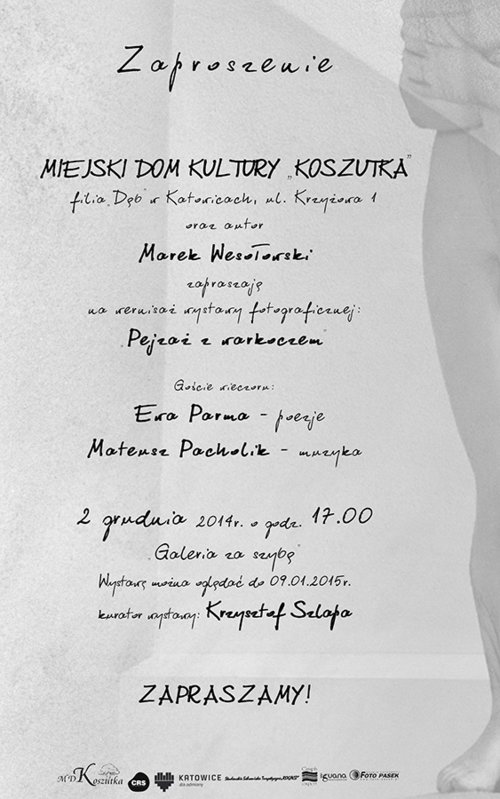 Zaproszenie
MIEJSKI DOM KULTURY „KOSZUTKA”
filia „Dąb” w Katowicach, ul. Krzyżowa 1
oraz autor
Marek Wesołowski
zapraszają
na wernisaż wystawy fotograficznej:
„Pejzaż z warkoczem”
Goście wieczoru:
Ewa Parma - poezje
Mateusz Pacholik - muzyka
2 grudnia 2014r. o godz. 17.00
„Galeria za szybą”
Wystawę można oglądać do 09.01.2015r.
kurator wystawy: Krzysztof Szlapa
ZAPRASZAMY!
MDK Koszutka CRS KATOWICE dla odmiany iguana FOTO PASEK